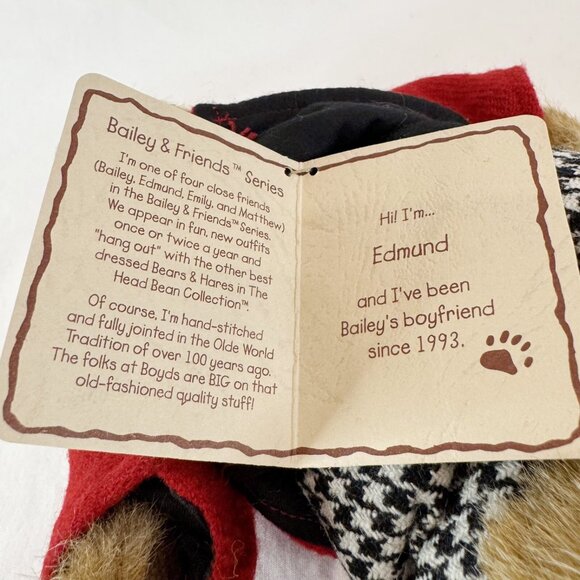 Bailey & Friends™ Series
I'm one of four close friends
(Bailey, Edmund, Emily, and Matthew)
in the Bailey & Friends™ Series.
We appear in fun, new outfits
once or twice a year and
"hang out" with the other best
dressed Bears & Hares in The
Head Bean Collection™.
Of course, I'm hand-stitched
and fully jointed in the Olde World
Tradition of over 100 years ago.
The folks at Boyds are BIG on that
old-fashioned quality stuff!
Hi! I'm...
Edmund
and I've been
Bailey's boyfriend
since 1993.